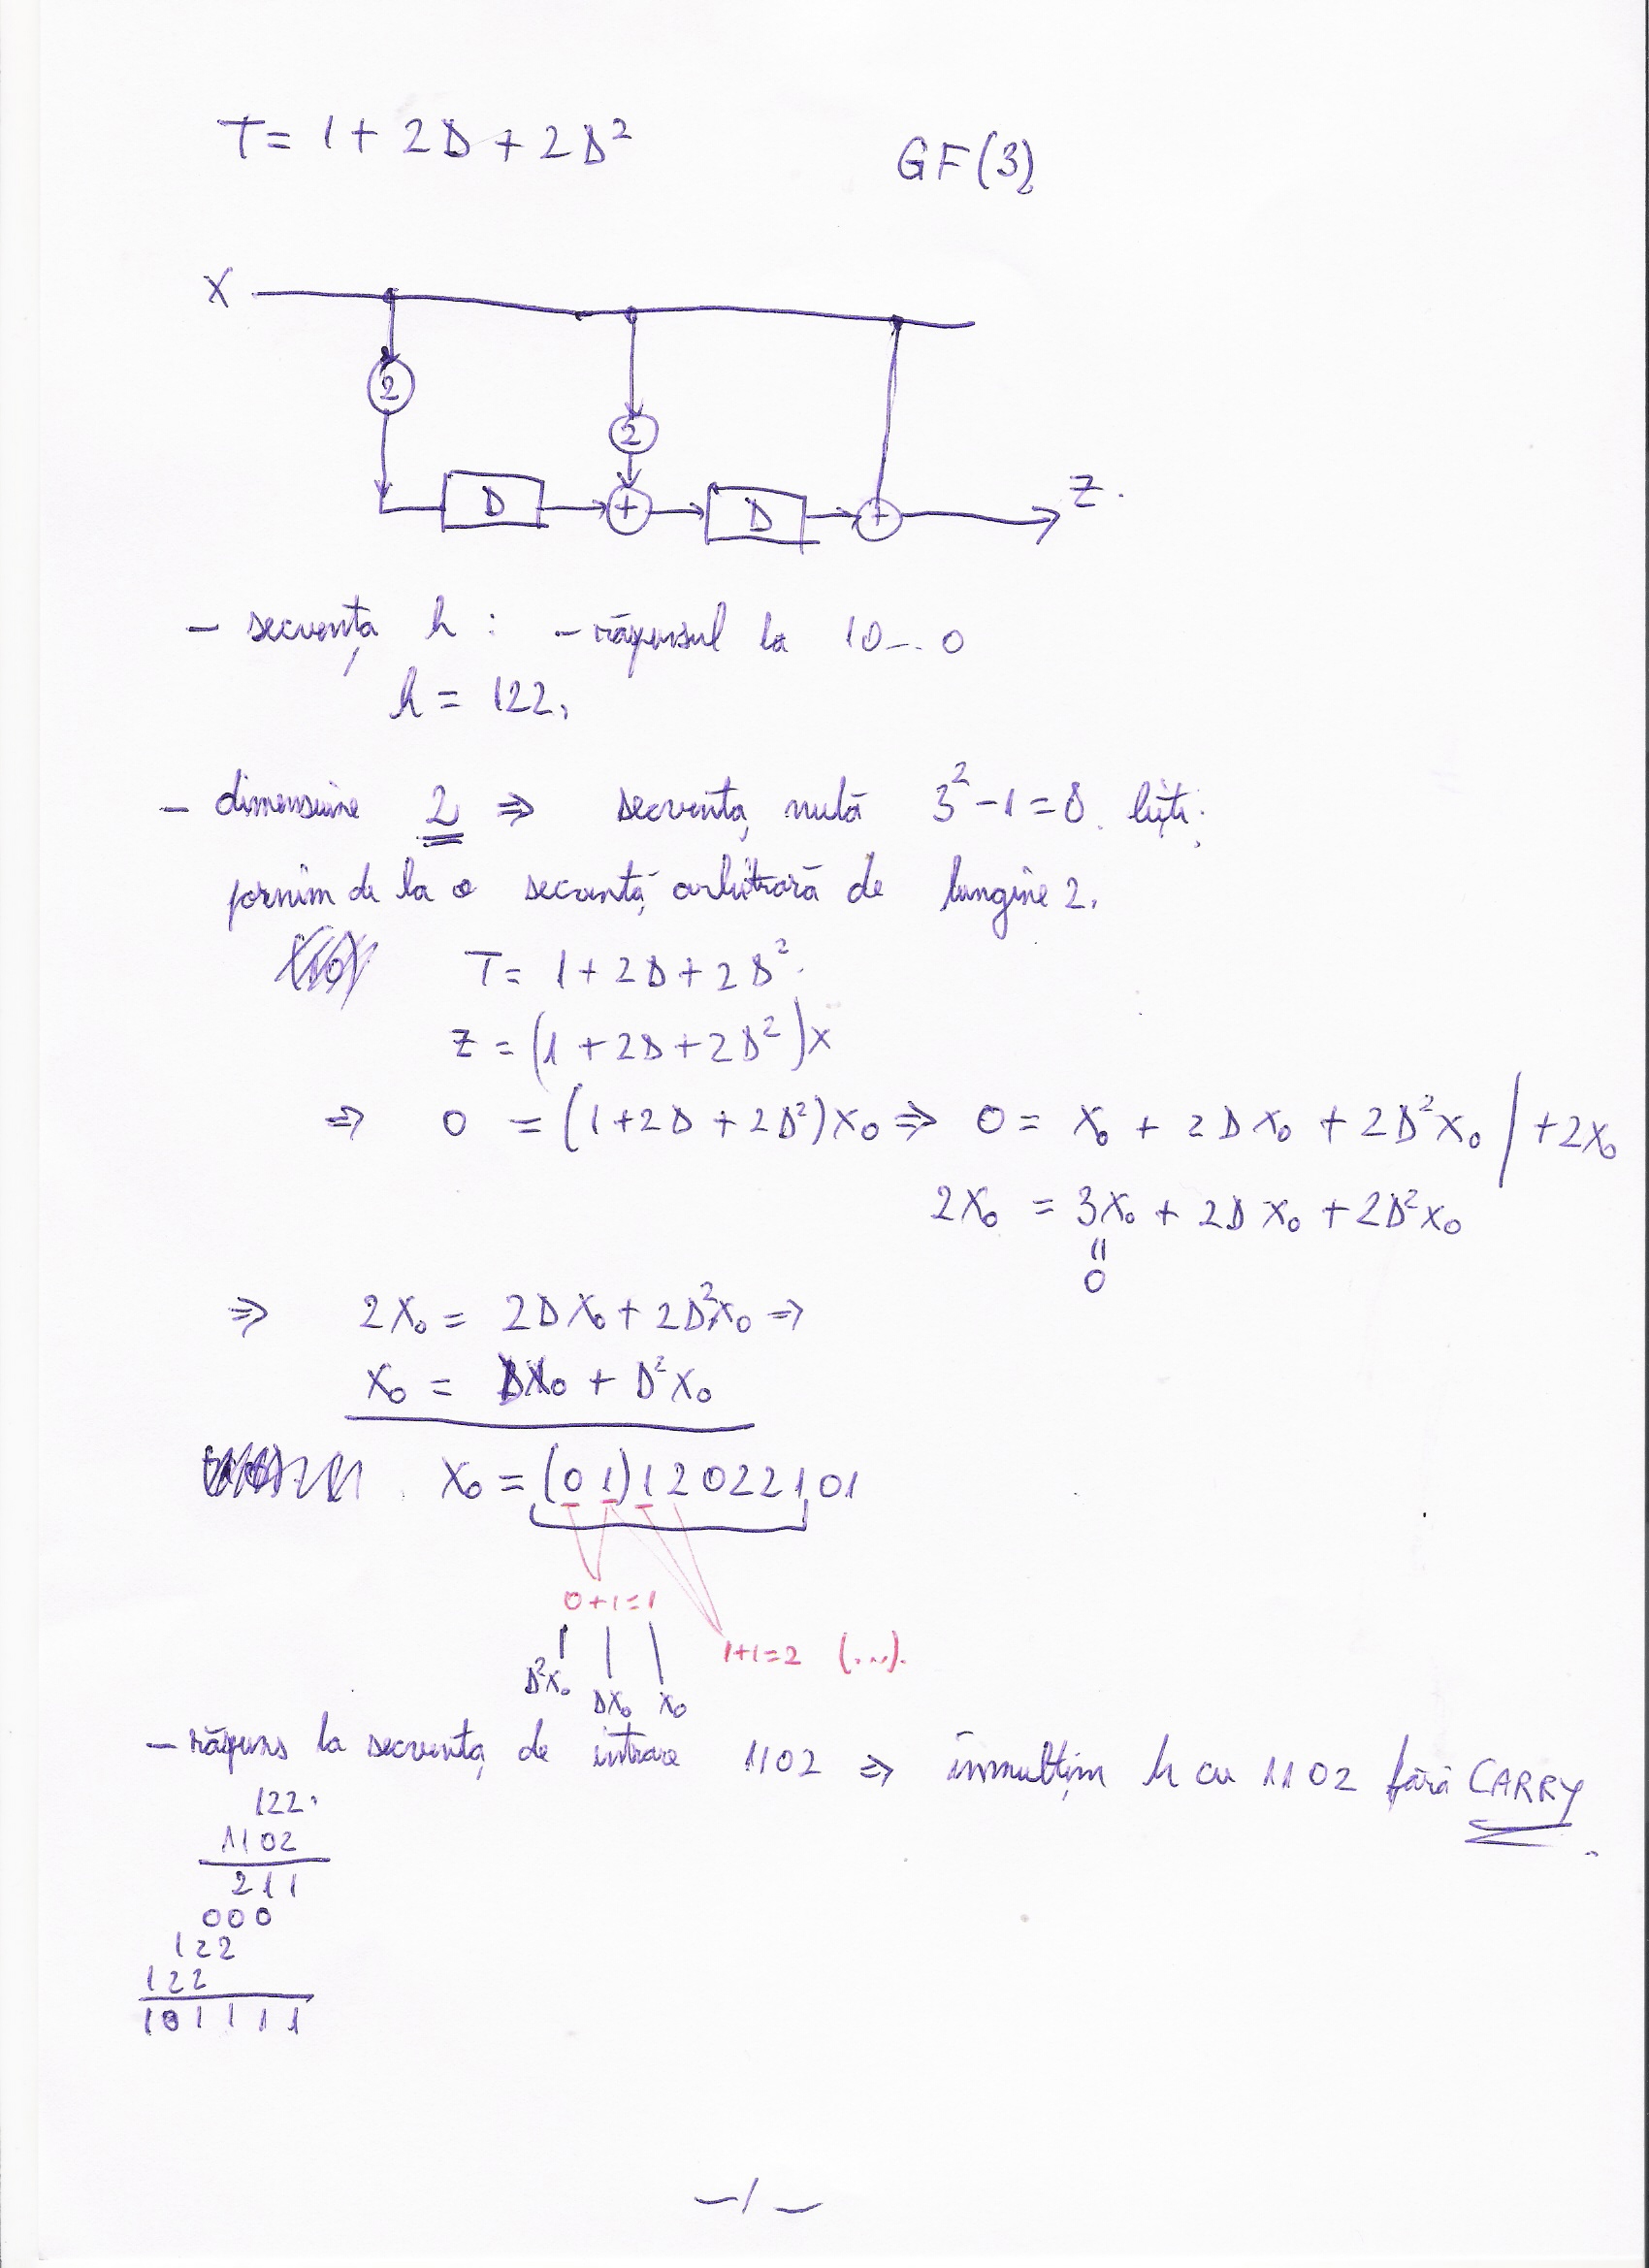 T = 1 + 2D + 2D² GF(3)
X
2
2
D + D + Z.
- secvența h : - răspunsul la 10...0
h = 122.
- dimensiune 2 ⇒ secvența nulă 3² - 1 = 8 biți.
pornim de la o secvență arbitrară de lungime 2.
T = 1 + 2D + 2D².
Z = (1 + 2D + 2D²)X
⇒ 0 = (1 + 2D + 2D²)X₀ ⇒ 0 = X₀ + 2DX₀ + 2D²X₀ / + 2X₀
2X₀ = 3X₀ + 2DX₀ + 2D²X₀
"
0
⇒ 2X₀ = 2DX₀ + 2D²X₀ ⇒
X₀ = DX₀ + D²X₀
X₀ = (01)12022101
0+1=1
1+1=2 (...).
D²X₀ DX₀ X₀
- răspuns la secvența de intrare 1102 ⇒ înmulțim h cu 1102 fără CARRY
122.
1102
211
000
122
122
101111
-1-